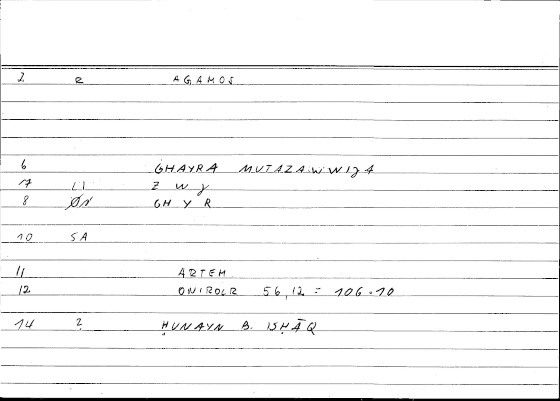 2 e AGAMOS
6 GHAYRA MUTAZAWWIJA
17 LI Z W J
8 ØN GH Y R
10 SA
11 ARTEM
12 ONIROCR 56,12 = 106.10
14 2 ḤUNAYN B. ISḤĀQ